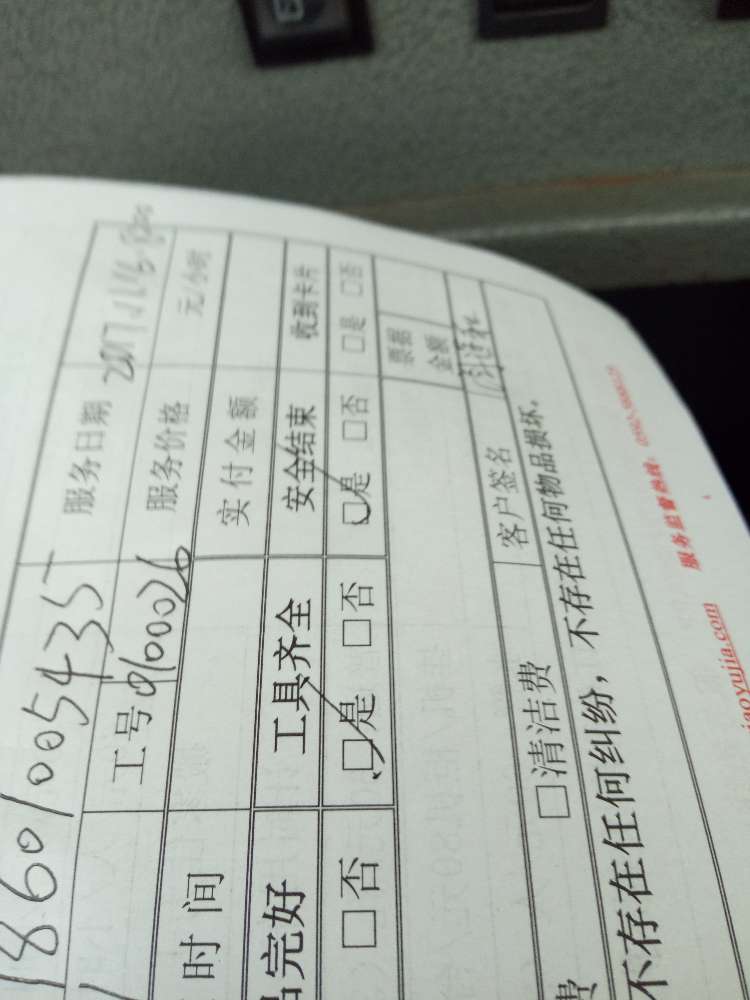 18601005435 服务日期
工号 0100026 服务价格 元/小时
时间 实付金额
品完好 工具齐全 安全结束 收到卡片
□否 □是 □否 □是 □否 □是 □否
票据
金额
□清洁费 客户签名
不存在任何纠纷，不存在任何物品损坏。
服务监督热线：